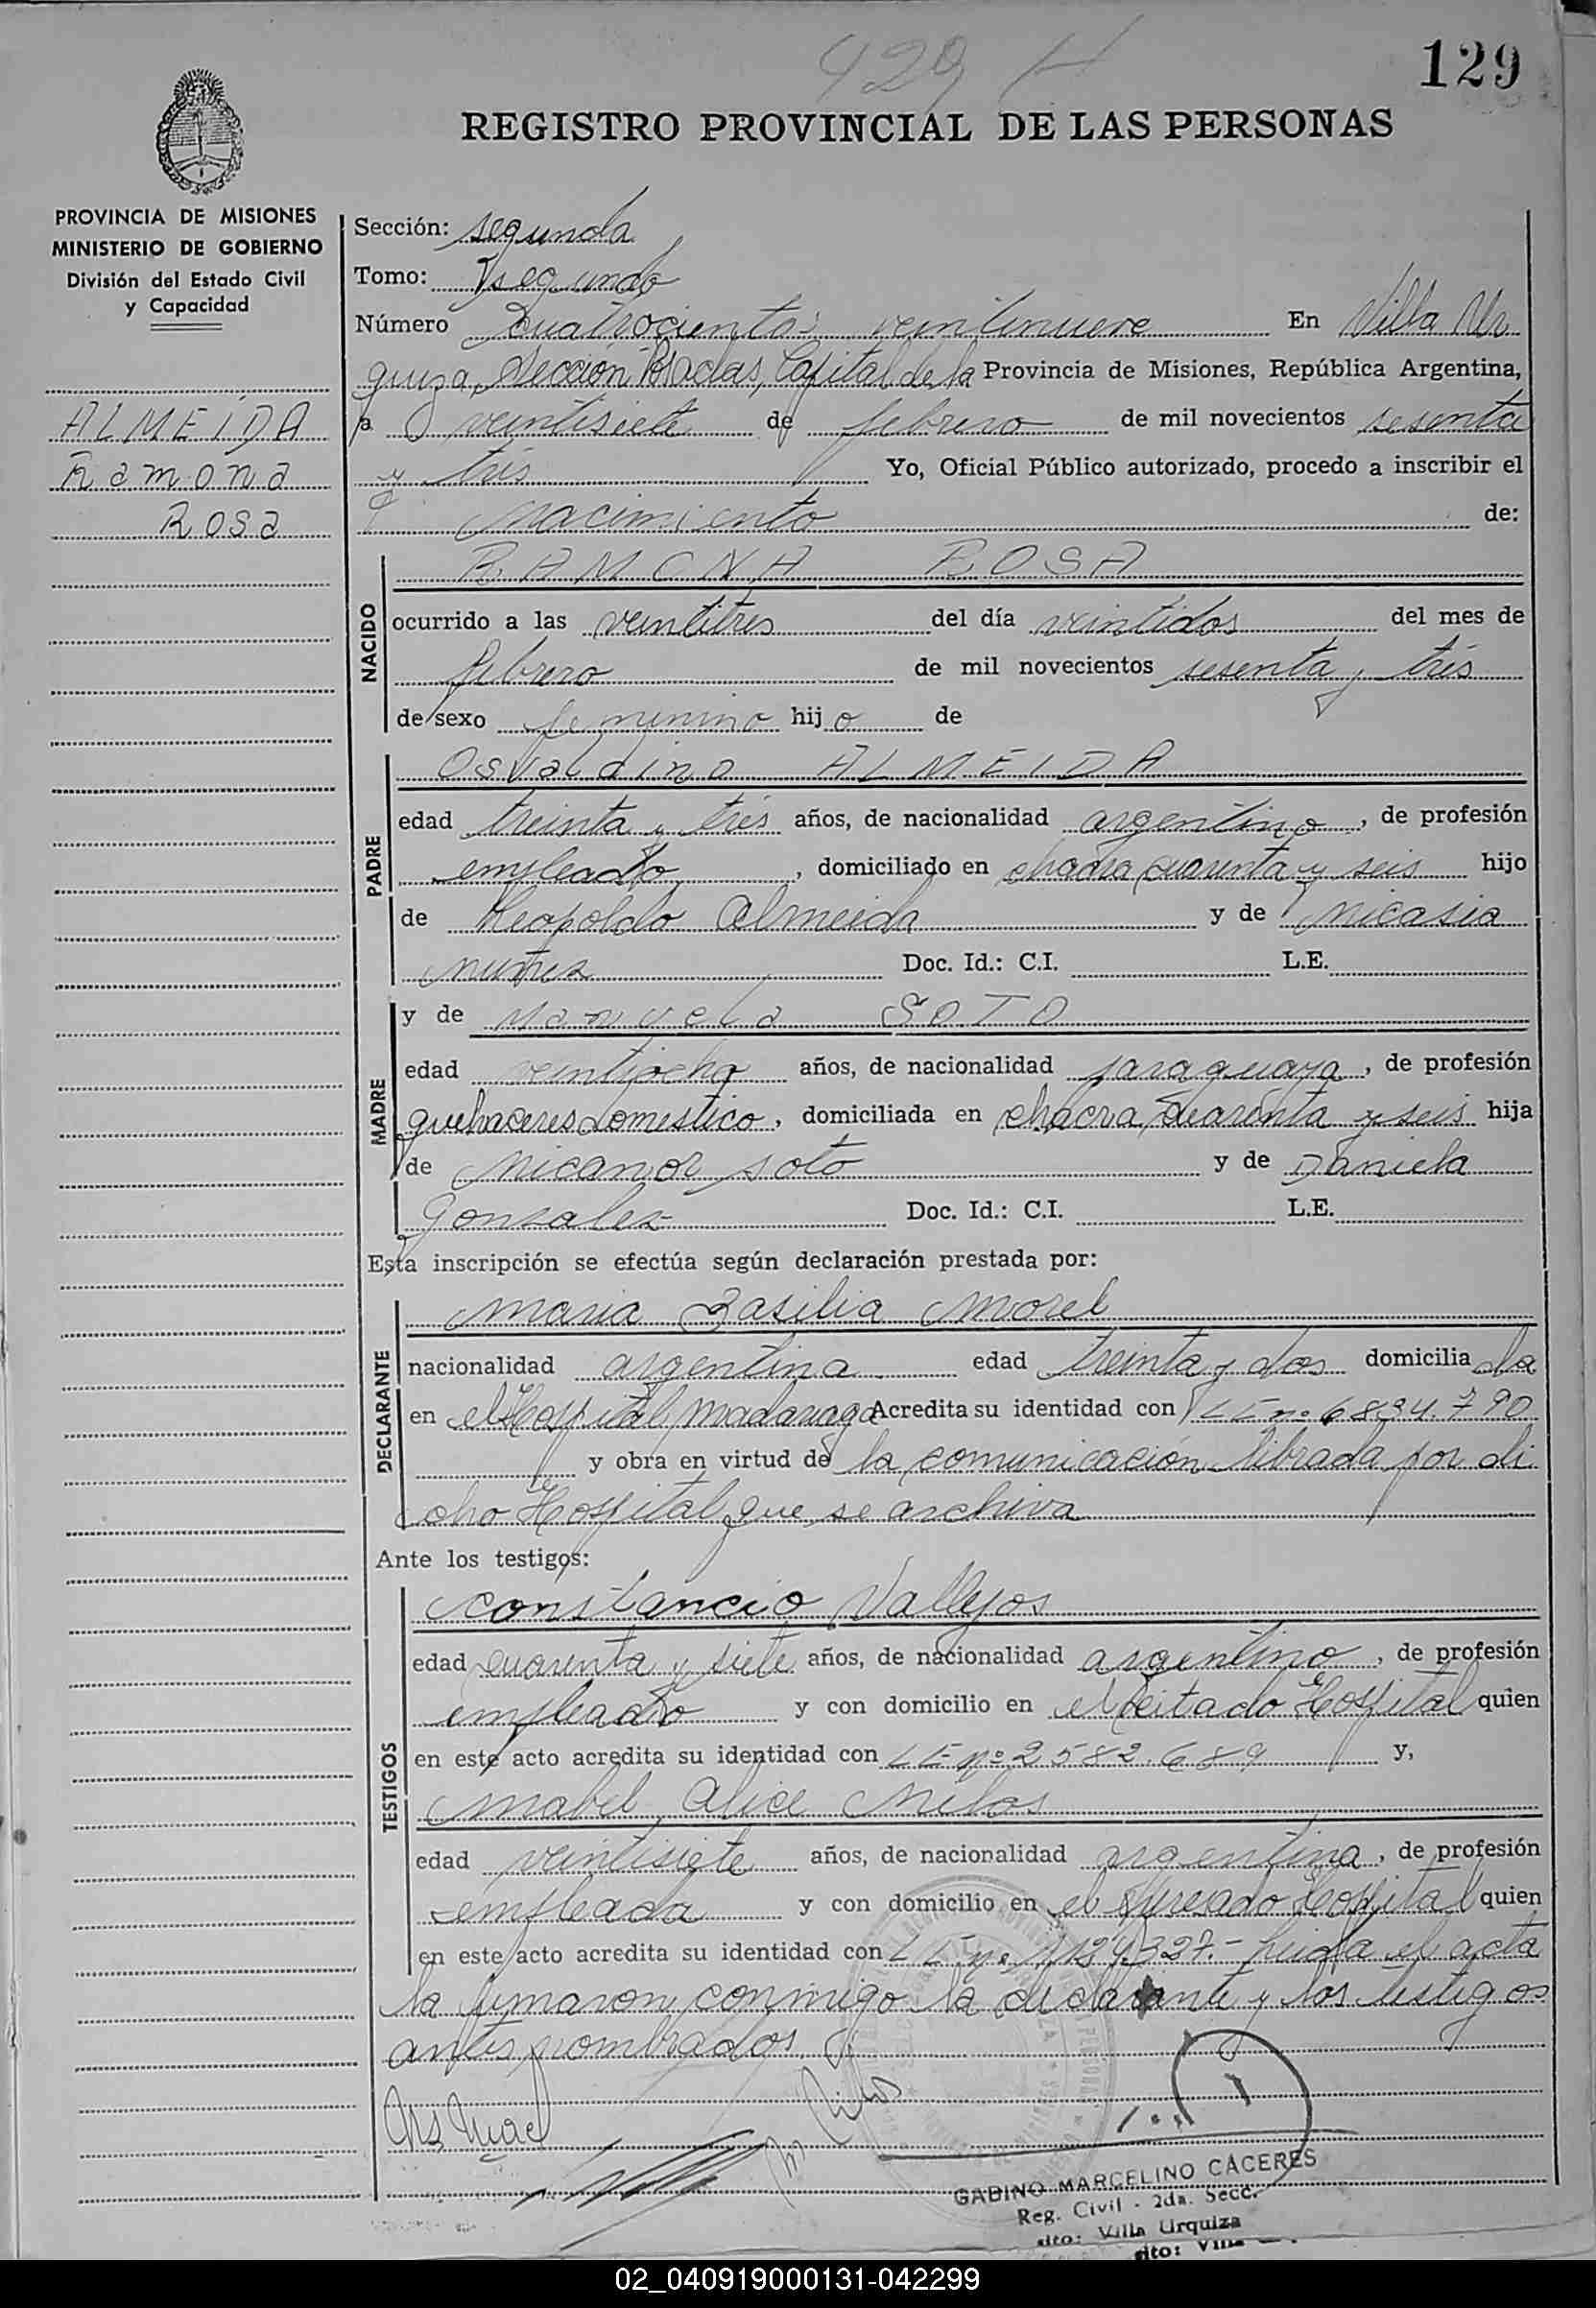 429
129
REGISTRO PROVINCIAL DE LAS PERSONAS
PROVINCIA DE MISIONES
MINISTERIO DE GOBIERNO
División del Estado Civil
y Capacidad
ALMEIDA
Ramona
Rosa
Sección: segunda
Tomo: segundo
Número cuatrocientos veintinueve En Villa Ur
quiza, Sección Posadas, Capital de la Provincia de Misiones, República Argentina,
a veintisiete de febrero de mil novecientos sesenta
y tres Yo, Oficial Público autorizado, procedo a inscribir el
nacimiento de:
NACIDO
RAMONA ROSA
ocurrido a las veintitres del día veintidos del mes de
febrero de mil novecientos sesenta y tres
de sexo femenino hijo de
PADRE
Osvaldino ALMEIDA
edad treinta y tres años, de nacionalidad argentino, de profesión
empleado, domiciliado en chacra cuarenta y seis hijo
de Leopoldo Almeida y de Nicasia
nuñez Doc. Id.: C.I. L.E.
MADRE
y de Manuela SOTO
edad veintiocho años, de nacionalidad paraguaya, de profesión
quehaceres domestico, domiciliada en chacra cuarenta y seis hija
de Nicanor soto y de Daniela
Gonzalez Doc. Id.: C.I. L.E.
Esta inscripción se efectúa según declaración prestada por:
DECLARANTE
Maria Basilia Morel
nacionalidad argentina edad treinta y dos domicilia da
en el Hospital Madariaga Acredita su identidad con LE nº 6834.790
y obra en virtud de la comunicación librada por di
cho Hospital que se archiva
Ante los testigos:
TESTIGOS
Constancio Vallejos
edad cuarenta y siete años, de nacionalidad argentino, de profesión
empleado y con domicilio en el citado Hospital quien
en este acto acredita su identidad con LE nº 2582.689 y,
Mabel Alice Melos
edad veintisiete años, de nacionalidad argentina, de profesión
empleada y con domicilio en el Hospital quien
en este acto acredita su identidad con LE nº leida el acta
la firmaron conmigo la declarante y los testigos
antes nombrados.
GABINO MARCELINO CACERES
Reg. Civil - 2da. Secc.
sito: Villa Urquiza
02_040919000131-042299